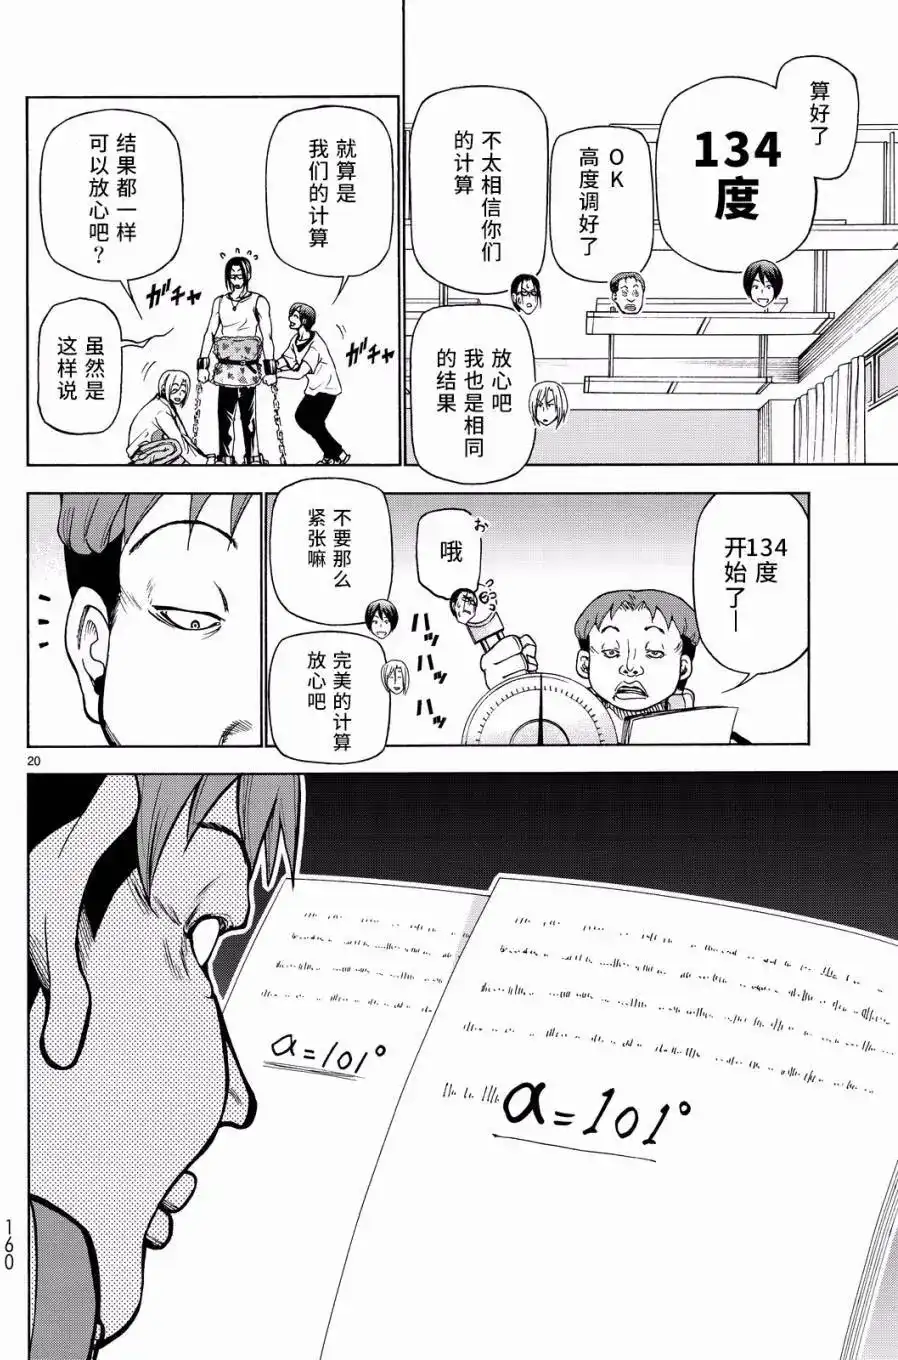 算好了
134
度
OK
高度调好了
不太相信你们
的计算
放心吧
我也是相同
的结果
就算是
我们的计算
结果都一样
可以放心吧？
虽然是
这样说
ガチャ
ガチャ
134度
开始了—
お
哦
ハッ
ハッ
ハッ
不要那么
紧张嘛
完美的计算
放心吧
20
α=101°
α=101°
160